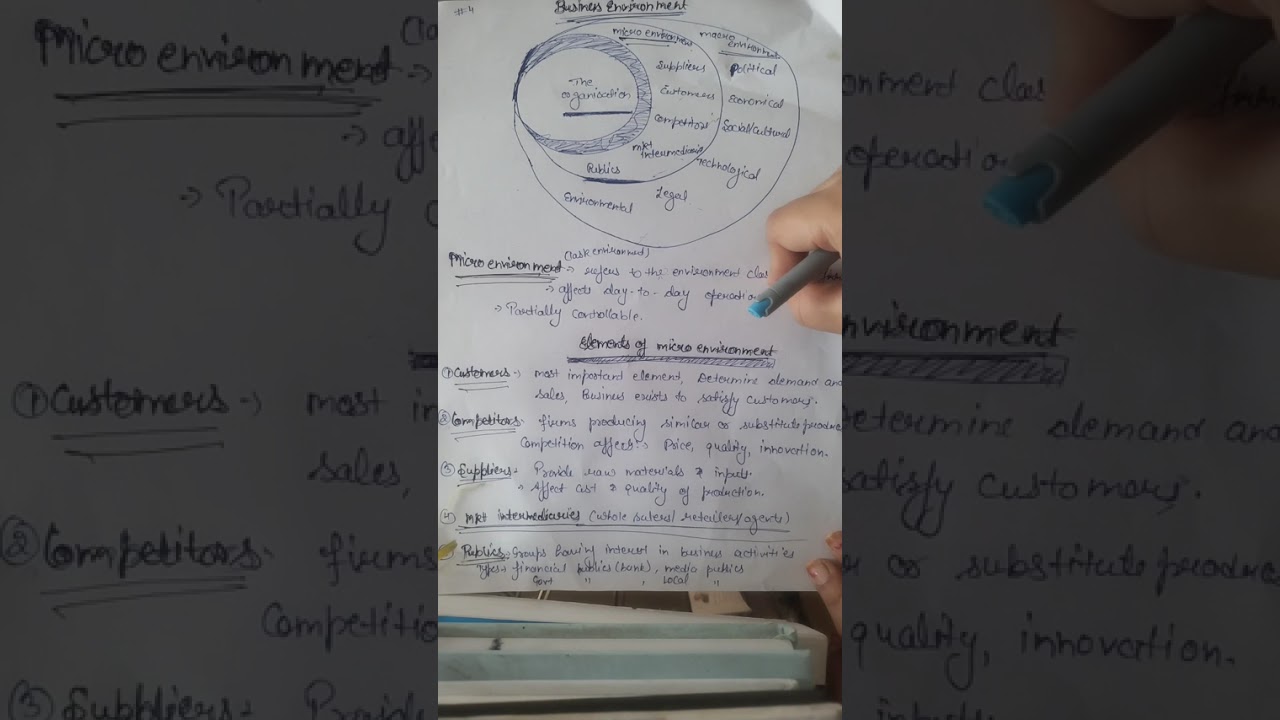 #4
Business Environment
micro environment
macro environment
The organisation
Suppliers
Customers
Competitors
mkt intermediaries
Publics
Political
Economical
Social/cultural
Technological
Legal
Environmental
(task environment)
Micro environment → refers to the environment
→ affects day-to-day
→ Partially controllable.
Elements of micro environment
① Customers → most important element, Determine demand and
sales, Business exists to satisfy customers.
② Competitors firms producing similar or substitute
Competition affects → Price, quality, innovation.
③ Suppliers → Provide raw materials & inputs.
→ Affect cost & quality of production.
④ mkt intermediaries (wholesalers/retailers/agents)
Publics → Groups having interest in business activities
Types → financial publics (bank), media publics
Govt " , Local "